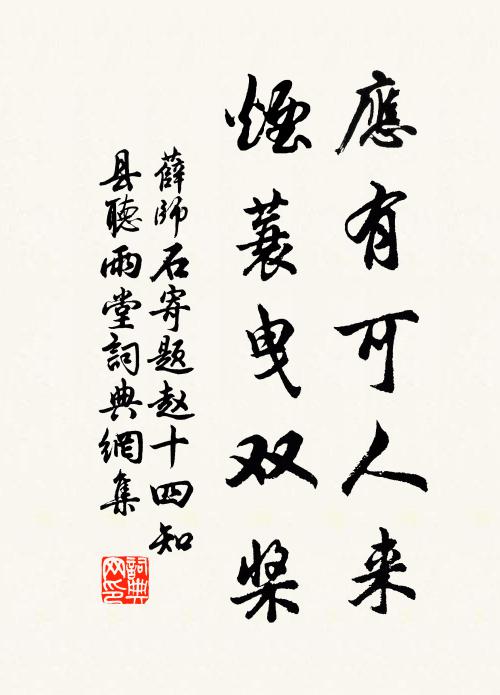 應有可人来
煙蓑曳双桨
薛師石寄题赵十四知
县聽雨堂詞典網集
詞典
网印